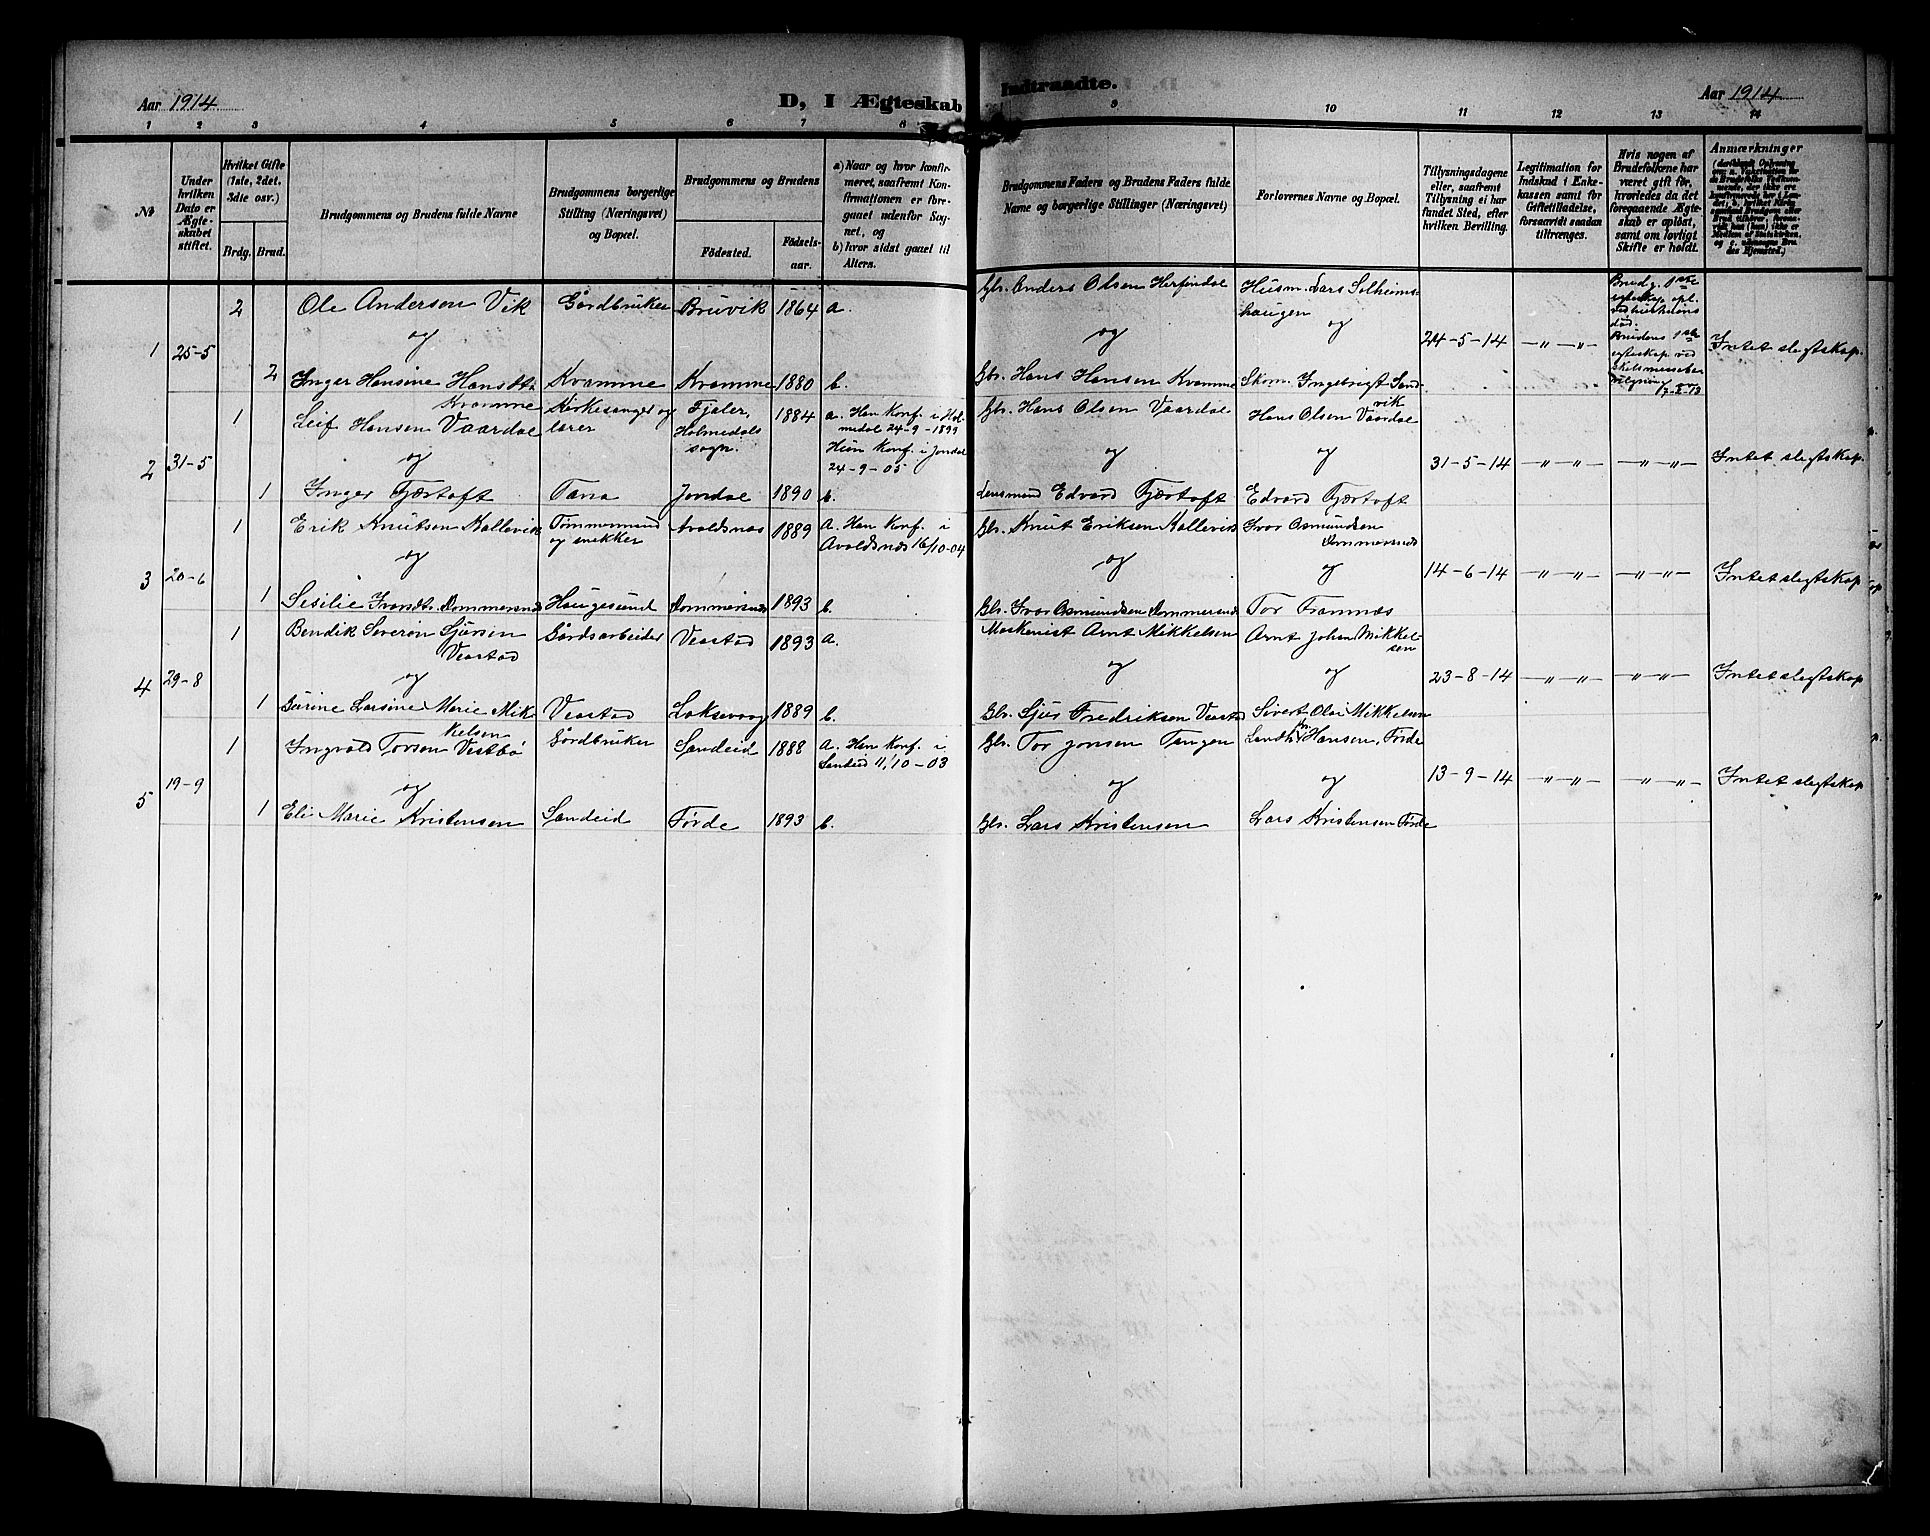 Aar 1914
D, I Ægteskab Indtraadte.
Aar 1914
1 2 3 4 5 6 7 8 9 10 11 12 13 14
№
Under hvilken Dato er Ægteskabet stiftet.
Hvilket Gifte (1ste, 2det, 3die osv.)
Brdg. Brud.
Brudgommens og Brudens fulde Navne
Brudgommens borgerlige Stilling (Næringsvei) og Bopæl.
Brudgommens og Brudens
Födested. Födselsaar.
a) Naar og hvor konfirmeret, saafremt Konfirmationen er foregaaet udenfor Sognet, og
b) hvor sidst gaaet til Alters.
Brudgommens Faders og Brudens Faders fulde Navne og borgerlige Stillinger (Næringsvei)
Forlovernes Navne og Bopæl.
Tillysningsdagene eller, saafremt Tillysning ei har fundet Sted, efter hvilken Bevilling.
Legitimation for Indskud i Enkekassen samt for Giftetilladelse, forsaavidt saadan tiltrænges.
Hvis nogen af Brudefolkene har været gift før, hvorledes da det foregaaende Ægteskab er oplöst, samt om lovligt Skifte er holdt.
Anmærkninger
2 Ole Anderson Vik Gårdbruker Bruvik 1864 a. Gbr. Anders Olsen Herfindal Husm. Lars Solheimshaugen
Brudg. 1ste egteskap opl. ved hustruens död.
1 25-5 og og og 24-5-14 —„—„— Brudens 1ste egteskap ved Intet slegtskap.
2 Inger Hansine Hansdt. Kvamme Kvamme Kvamme 1880 b. Gbr. Hans Hansen Kvamme Skom. Ingebrigt Sandvik
1 Leif Hansen Vaardal Kirkesanger og lærer Fjaler, Holmedals sogn. 1884 a. Han Konf. i Holmedal 24-9-1899 Gbr. Hans Olsen Vaardal Hans Olsen Vaardal
Hun Konf. i Jondal 24-9-05
2 31-5 og og og 31-5-14 —„—„— —„—„— Intet slegtskap.
1 Inger Fjærtoft Tana Jondal 1890 b. Lensmand Edvard Fjærtoft Edvard Fjærtoft
1 Erik Knutsen Kallevik Tømmermand og snekker Avaldsnæs 1889 a. Han Konf. i Avaldsnæs 16/10-04 Gbr. Knut Eriksen Kallevik Ivar Osmundsen Dommersnes
3 20-6 og og og 14-6-14 —„—„— —„—„— Intet slegtskap
1 Sesilie Ivarsdt. Dommersnes Haugesund Dommersnes 1893 b. Gbr. Ivar Osmundsen Dommersnes Tor Framnæs
1 Bendik Severin Sjursen Veastad Gårdsarbeider Veastad 1893 a. Maskenist Arnt Mikkelsen Arnt Johan Mikkelsen
4 29-8 og og og 23-8-14 —„—„— —„—„— Intet slegtskap
1 Larsine Marie Mikkelsen Veastad Laksevaag 1889 b. Gbr. Sjur Fredriksen Veastad Sivert Olai Mikkelsen
1 Ingvald Torsen Vestbö Gårdbruker Sandeid 1888 a. Han Konf. i Sandeid 11/10-03 Gbr. Tor Jonsen Tangen Hansen, Förde
5 19-9 og og 13-9-14 —„—„— —„—„— Intet slegtskap
1 Eli Marie Kristensen Sandeid Förde 1893 b. Gbr. Lars Kristensen Lars Kristensen Förde